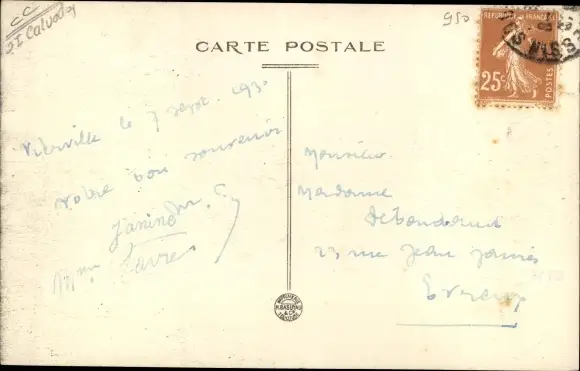 CC
21 Calvados
950
CARTE POSTALE
RÉPUBLIQUE FRANÇAISE
25c
POSTES
Vierville le 7 sept. 1930
Notre bon souvenir
Janine
Favre
Monsieur
Madame
23 rue Jean Jaurès
Evreux